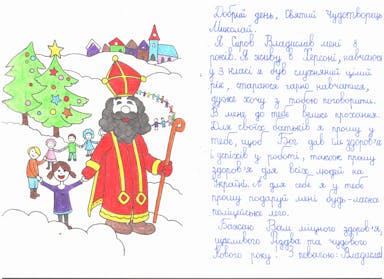 Добрий день, Святий Чудотворець
Миколай.
Я Сиров Владислав мені 8
років. Я живу в Херсоні, навчаюсь
у 3 класі я був слухняний цілий
рік, стараюся гарно навчатися,
дуже хочу з тобою поговорити.
В мене до тебе велике прохання.
Для своїх батьків я прошу у
тебе, щоб Бог дав їм здоров'я
і успіхів у роботі, також прошу
здоров'я для всіх людей на
Україні. А для себе я у тебе
прошу подаруй мені будь-ласка
поліцейське лего.
Бажаю Вам міцного здоров'я,
щасливого Різдва та чудового
Нового року! З повагою: Владислав